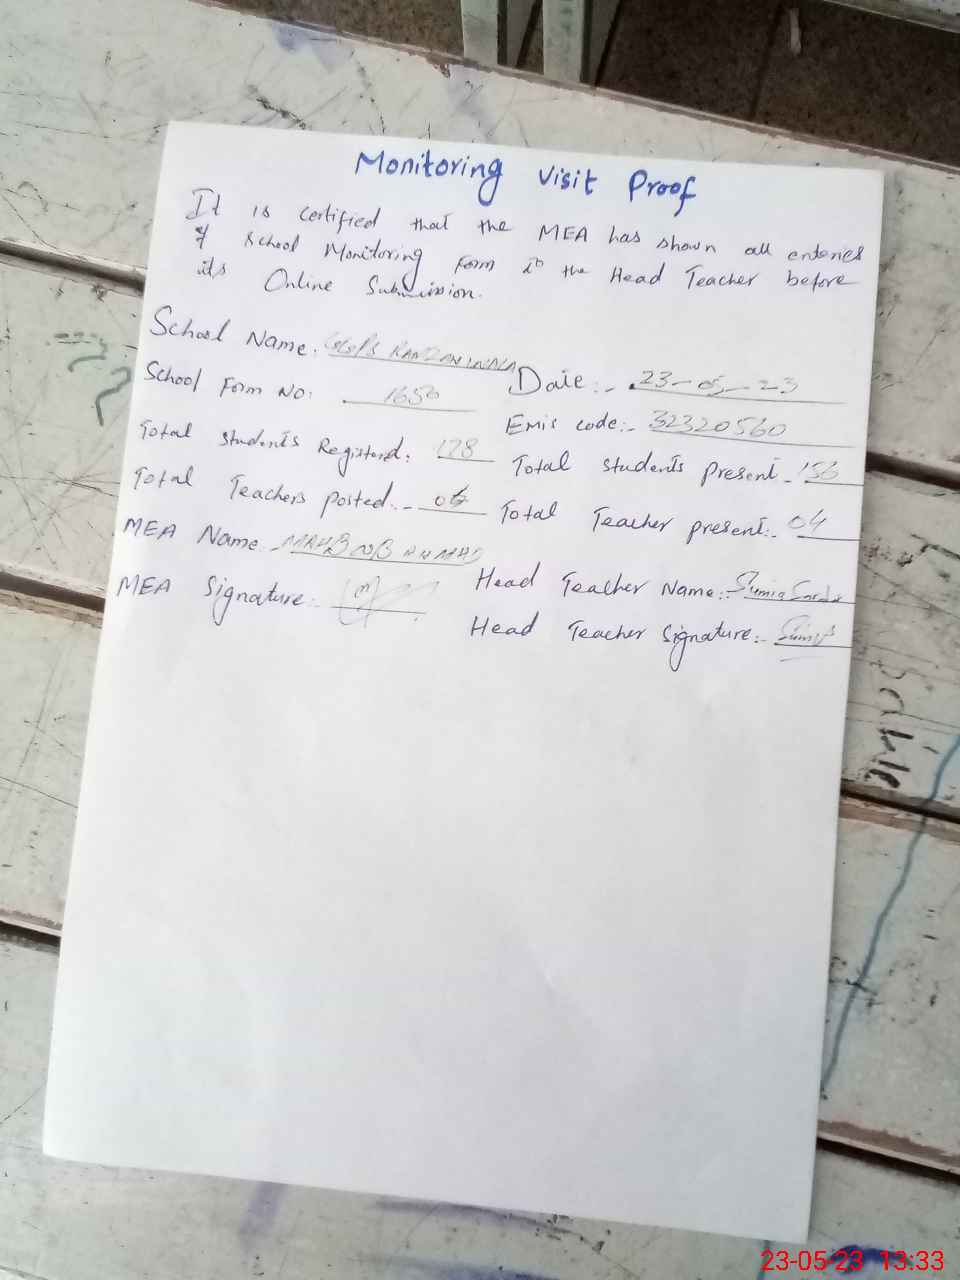 Monitoring Visit Proof
It is certified that the MEA has shown all enteries
of School Monitoring Form to the Head Teacher before
its Online Submission.
School Name. GGPS
Date:- 23-05-23
School Form No: 1650
Emis code:- 32320560
Total Students Registerd: 178
Total students present- 153
Total Teachers posted:- 05
Total Teacher present:- 04
MEA Name- MAHBOOB AHMAD
Head Teacher Name:- Sumia
MEA Signature:
Head Teacher Signature:-
Sahil
23-05-23 13:33